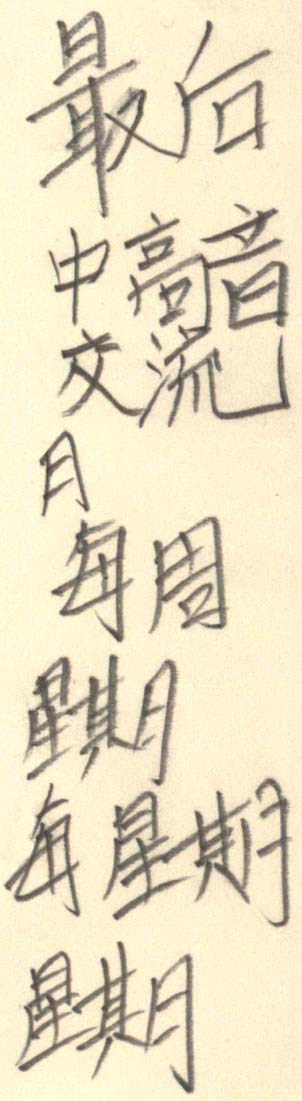 最后
中高音
交流
月
每周
星期
每星期
星期